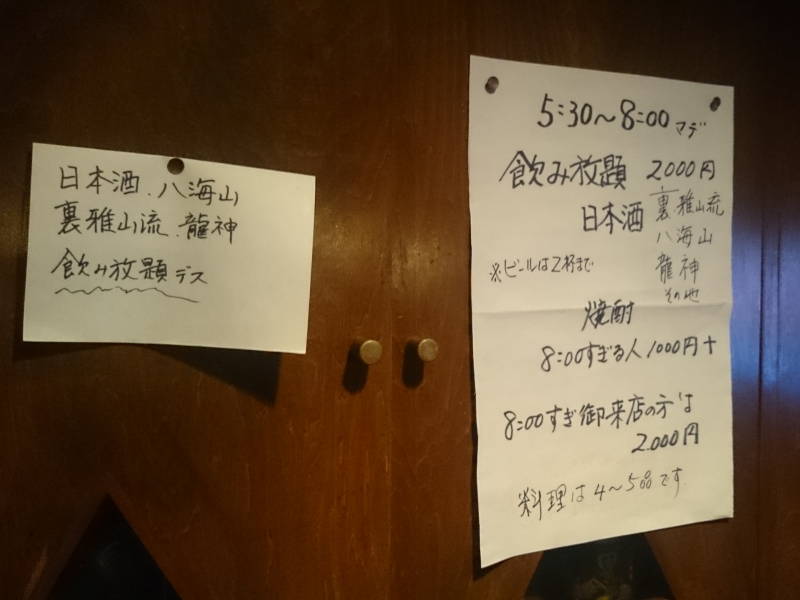 日本酒.八海山
裏雅山流.龍神
飲み放題デス
5:30〜8:00マデ
飲み放題 2000円
日本酒 裏.雅山流
八海山
龍神
その他
※ビールは2杯まで
焼酎
8:00すぎる人1000円+
8:00すぎ御来店の方は
2.000円
料理は4〜5品です.